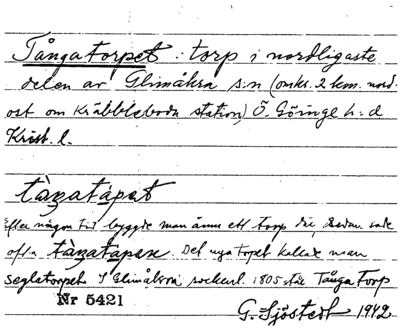 Tångatorpet: torp i nordligaste
delen av Glimåkra s:n (omkr. 2 km. nord-
ost om Kräbbleboda station) Ö. Göinge h:d
Krist. l.
tàŋatápət
Efter någon tid byggde man ännu ett torp där, sedan sade
ofta tàŋatápən. Det nya torpet kallade man
seglatorpet. I Glimåkra sockenl. 1805 står Tånga Torp
Nr 5421
G. Sjöstedt 1942